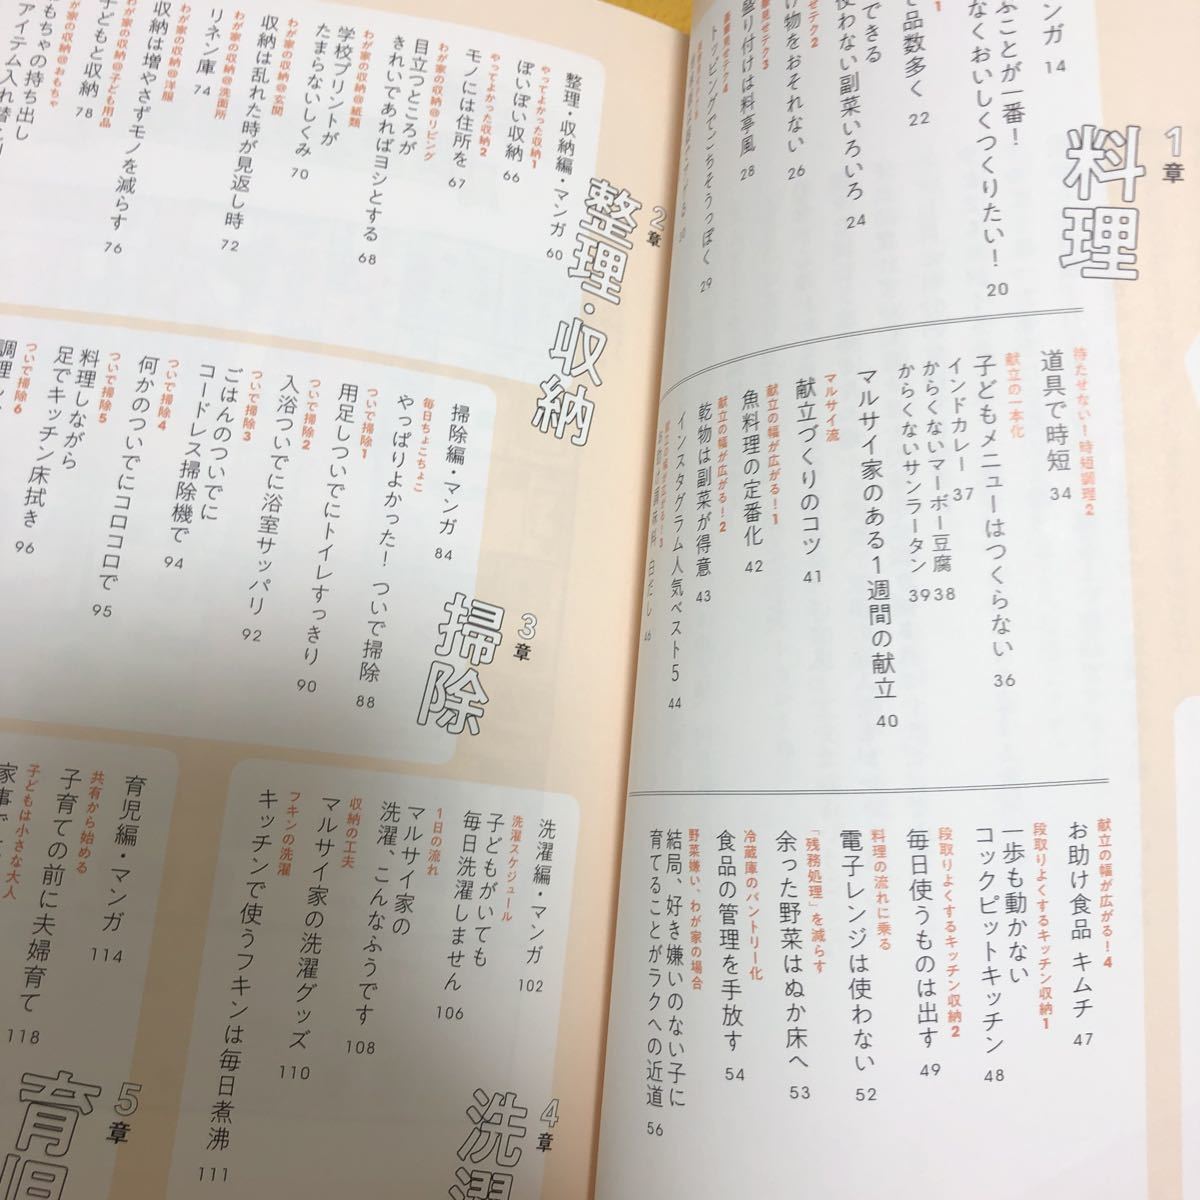 1章
料理
ンガ 14
ぶことが一番！
なくおいしくつくりたい！ 20
1
で品数多く 22
できる
使わない副菜いろいろ 24
テク2
け物をおそれない 26
テク3
盛り付けは料亭風 28
テク4
トッピングでごちそうっぽく 29
待たせない！時短調理2
道具で時短 34
献立の一本化
子どもメニューはつくらない 36
インドカレー 37
からくないマーボー豆腐 38
からくないサンラータン 39
マルサイ家のある1週間の献立 40
マルサイ流
献立づくりのコツ 41
献立の幅が広がる！1
魚料理の定番化 42
献立の幅が広がる！2
乾物は副菜が得意 43
インスタグラム人気ベスト5 44
献立の幅が広がる！3
白だし 46
献立の幅が広がる！4
お助け食品 キムチ 47
段取りよくするキッチン収納1
一歩も動かない
コックピットキッチン 48
段取りよくするキッチン収納2
毎日使うものは出す 49
料理の流れに乗る
電子レンジは使わない 52
「残務処理」を減らす
余った野菜はぬか床へ 53
冷蔵庫のパントリー化
食品の管理を手放す 54
野菜嫌い、わが家の場合
結局、好き嫌いのない子に
育てることがラクへの近道 56
2章
整理・収納
整理・収納編・マンガ 60
やってよかった収納1
ぽいぽい収納 66
やってよかった収納2
モノには住所を 67
わが家の収納@リビング
目立つところが
きれいであればヨシとする 68
わが家の収納@紙類
学校プリントが
たまらないしくみ 70
わが家の収納@玄関
収納は乱れた時が見返し時 72
わが家の収納@洗面所
リネン庫 74
わが家の収納@洋服
収納は増やさずモノを減らす 76
わが家の収納@子ども用品
子どもと収納 78
わが家の収納@おもちゃ
もちゃの持ち出し
アイテム入れ替え
3章
掃除
掃除編・マンガ 84
毎日ちょこちょこ
やっぱりよかった！ついで掃除 88
ついで掃除1
用足しついでにトイレすっきり 90
ついで掃除2
入浴ついでに浴室サッパリ 92
ついで掃除3
ごはんのついでに
コードレス掃除機で 94
ついで掃除4
何かのついでにコロコロで 95
ついで掃除5
料理しながら
足でキッチン床拭き 96
ついで掃除6
調理
4章
洗濯
洗濯編・マンガ 102
洗濯スケジュール
子どもがいても
毎日洗濯しません 106
1日の流れ
マルサイ家の
洗濯、こんなふうです 108
収納の工夫
マルサイ家の洗濯グッズ 110
フキンの洗濯
キッチンで使うフキンは毎日煮沸 111
5章
育児
育児編・マンガ 114
共有から始める
子育ての前に夫婦育て 118
子どもは小さな大人
家事で